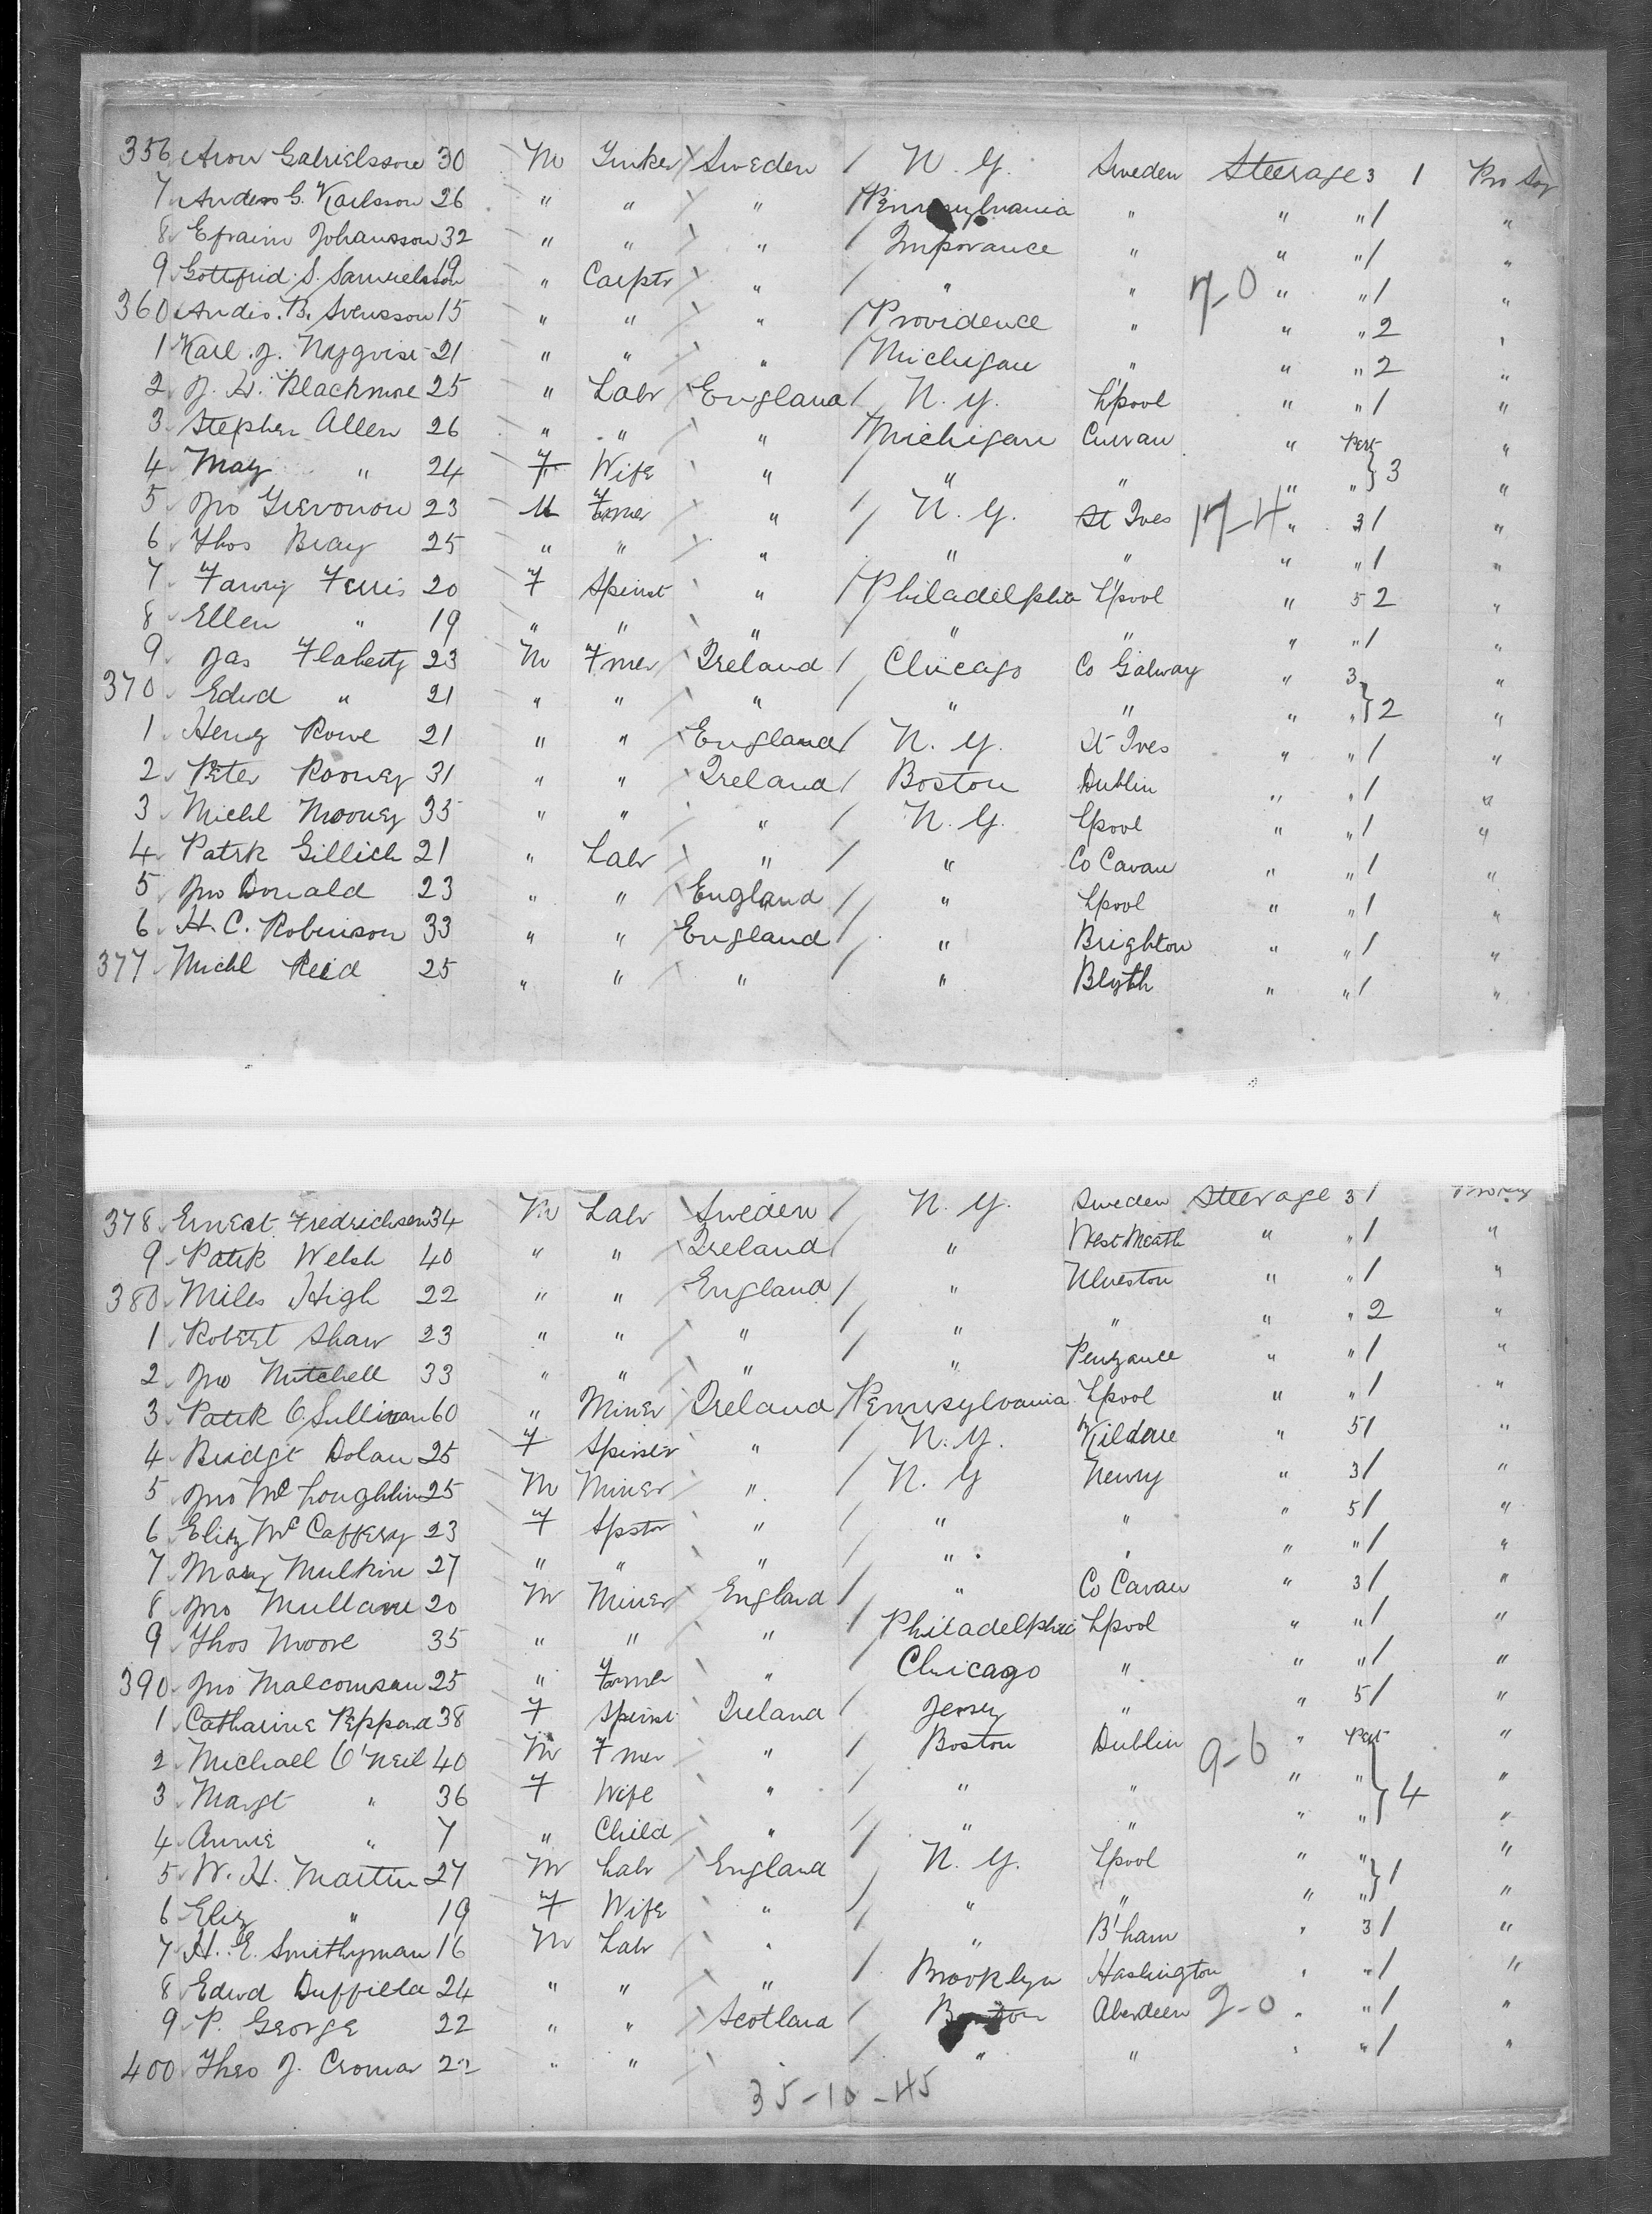 356 Aron Gabrielsson 30 M Tinker Sweden / N.Y. Sweden Steerage 3 1 Pro Soj
7 Anders G. Karlsson 26 " " " / Pennsylvania " " " / "
8 Efraim Johansson 32 " " " / " " " / "
9 Gottfrid S. Samuelsson 19 " Carptr " / " " 7-0 " " / "
360 Andrs. B. Svensson 15 " " " / Providence " " " 2 "
1 Karl J. Nyqvist 21 " " " / Michigan " " " 2 "
2 J. H. Blackmore 25 " Labr England / N.Y. L'pool " " / "
3 Stephen Allen 26 " " " / Michigan Curvan " Pert "
4 May " 24 F Wife " / " " " " } 3 "
5 Jno Grevonow 23 M Farmer " / N.Y. St Ives 17-4 " 3 / "
6 Thos Bray 25 " " " / " " " " / "
7 Fanny Ferris 20 F Spinst " / Philadelphia L'pool " 5 2 "
8 Ellen " 19 " " " / " " " " / "
9 Jas Flaherty 23 M Fmer Ireland / Chicago Co Galway " 3 "
370 Edwd " 21 " " " / " " " " } 2 "
1 Henry Rowe 21 " " England / N.Y. St Ives " " / "
2 Peter Rooney 31 " " Ireland / Boston Dublin " " / "
3 Michl Mooney 35 " " " / N.Y. L'pool " " / "
4 Patrk Gillich 21 " Labr " / " Co Cavan " " / "
5 Jno Donald 23 " " England / " L'pool " " / "
6 H. C. Robinson 33 " " England / " Brighton " " / "
377 Michl Reid 25 " " " / " Blyth " " / "
378 Ernest Fredrichsen 34 M Labr Sweden / N.Y. Sweden Steerage 3 /
9 Patrk Welsh 40 " " Ireland / " West Meath " " / "
380 Miles High 22 " " England / " Ulverston " " / "
1 Robert Shaw 23 " " " / " " " " 2 "
2 Jno Mitchell 33 " " " / " Penzance " " / "
3 Patrk O'Sullivan 60 " Miner Ireland / Pennsylvania L'pool " " / "
4 Bridgt Dolan 25 F Spinster " / N.Y. Kildare " 5 / "
5 Jno McLoughlin 25 M Miner " / N.Y Newry " 3 / "
6 Eliz McCaffery 23 F Spstr " / " " " 5 / "
7 Mary Mulkin 27 " " " / " " " " / "
8 Jno Mullane 20 M Miner England / " Co Cavan " 3 / "
9 Thos Moore 35 " " " / Philadelphia L'pool " " / "
390 Jno Malcomsan 25 " Farmer " / Chicago " " " / "
1 Catharine Peppard 38 F Spinst Ireland / Jersey " " 5 / "
2 Michael O'Neil 40 M Fmer " / Boston Dublin 9-6 " Pert "
3 Margt " 36 F Wife " / " " " " } 4 "
4 Annie " 7 " Child " / " " " " "
5 W. H. Martin 27 M Labr England / N.Y. L'pool " " } 1 "
6 Eliz " 19 F Wife " / " " " " "
7 H. E. Smithyman 16 M Labr " / " B'ham " 3 / "
8 Edwd Duffield 24 " " " / Brooklyn Haslington " " / "
9 P. George 22 " " Scotland / Boston Aberdeen 2-0 " " / "
400 Theo J. Cromar 22 " " " / " " " " / "
35-10-45